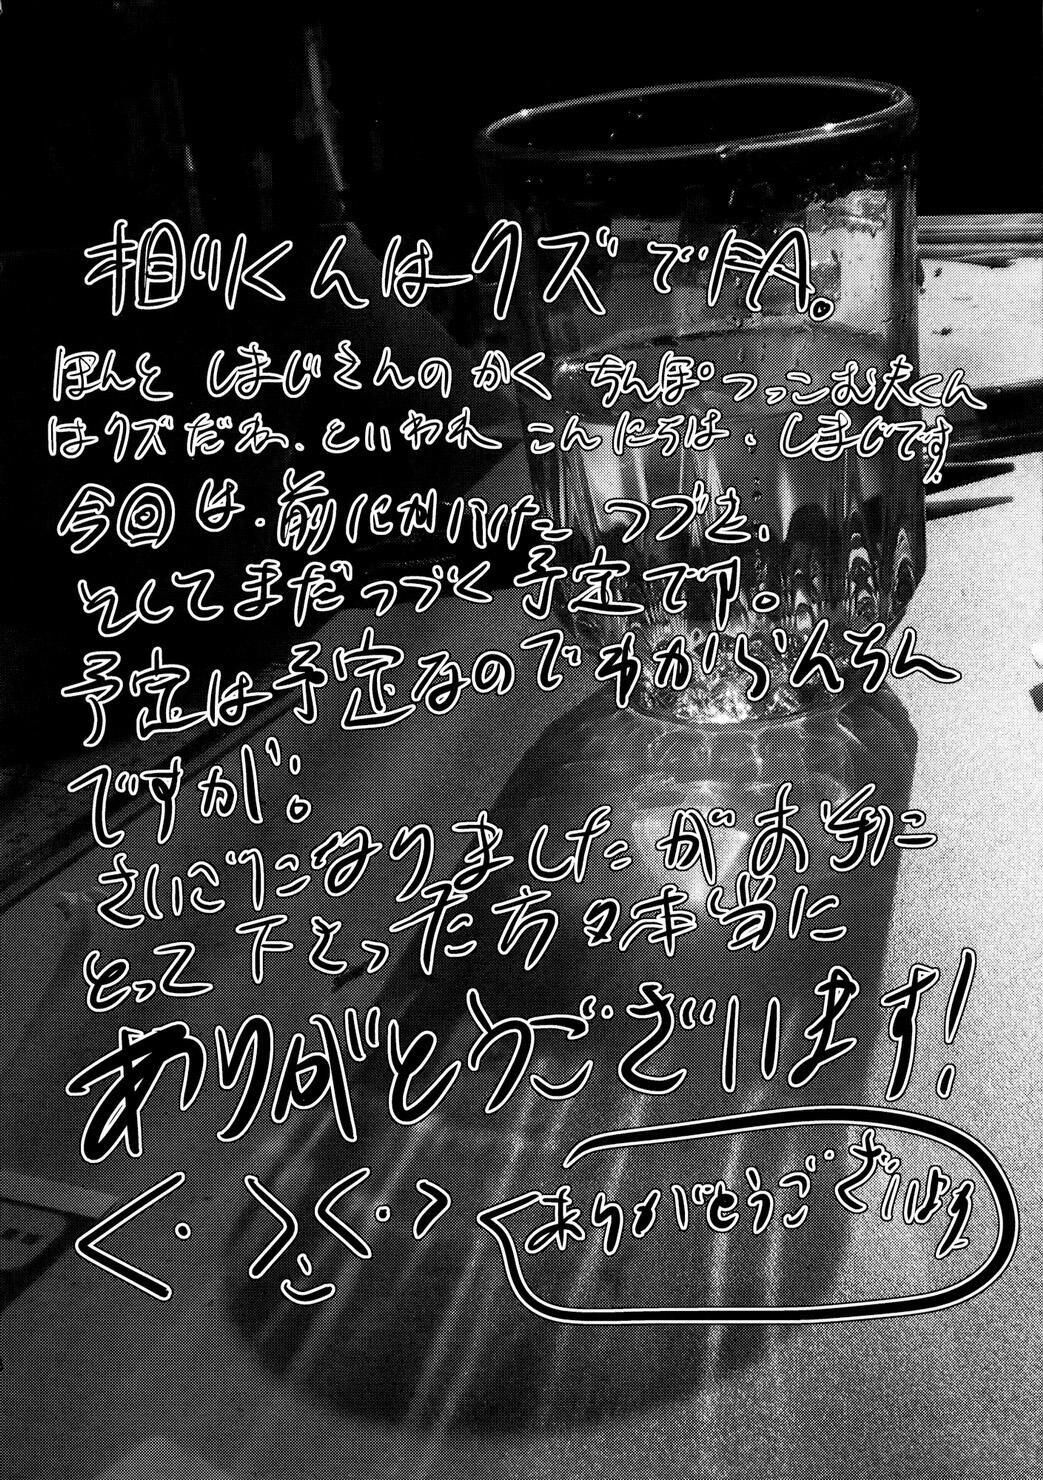 相川くんはクズでFA。
ほんと しまじさんのかく ちんぽつっこむ夫くん
はクズだね、といわれ こんにちは、しまじです。
今回は、前にかいた つづき、
そしてまだつづく予定です。
予定は予定なのでわからんちん
ですが!
さいごになりましたがお手に
とって下さった方々本当に
ありがとうございます!
ありがとうございます